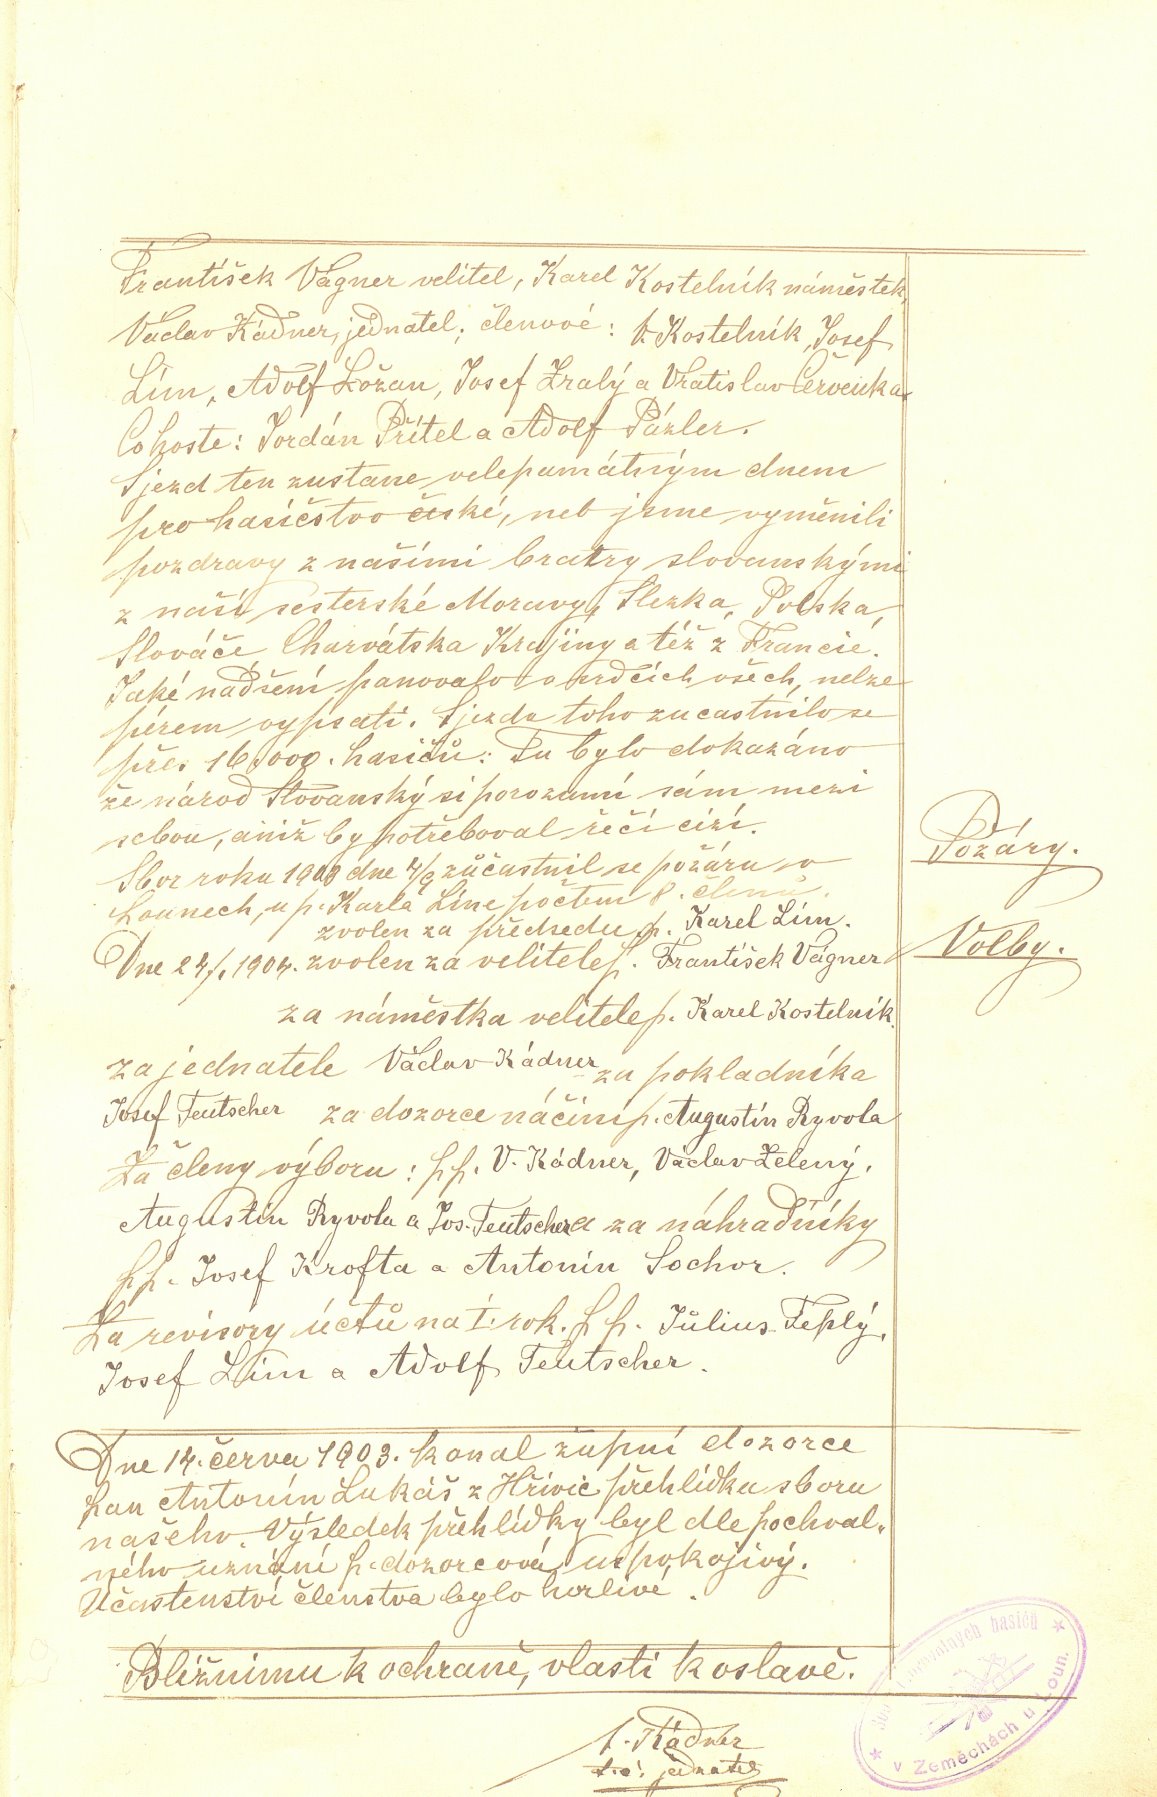 František Vágner velitel, Karel Kostelník náměstek,
Václav Kádner, jednatel; členové: V. Kostelník, Josef
Lím, Adolf Ložan, Josef Zralý a Vratislav Červenka.
Co hoste: Jordán Přítel a Adolf Pázler.
Sjezd ten zustane velepamátným dnem
pro hasičstvo české, neb jsme vyměnili
pozdravy z našimi bratry slovanskými
z naší sesterské Moravy, Slezka, Polska,
Slováče, Charvátska Krajiny a též z Francie.
Jaké nadšení panovalo v srdcích všech, nelze
pérem vypsati. Sjezdu toho zucastnilo se
přes 16000. hasičů: Tu bylo dokazáno
že národ Slovanský si porozumí sám mezi
sebou, aniž by potřeboval řeči cizí.
Sbor roku 1903 dne 4/9 zůčastnil se požáru v
Lounech, u p. Karla Líne počtem 8. členů.
Požáry.
zvolen za předsedu p. Karel Lím.
Dne 24/1 1904. zvolen za velitele p. František Vágner
Volby.
za náměstka velitele p. Karel Kostelník.
za jednatele Václav Kádner za pokladníka
Josef Teutscher za dozorce náčiní p. Augustín Ryvola
Za členy výboru: pp. V. Kádner, Václav Zelený,
Augustin Ryvola a Jos. Teutscher a za náhradníky
pp. Josef Krofta a Antonín Sochor.
Za revisory účtů na 1. rok. pp. Július Teplý,
Josef Lím a Adolf Teutscher.
Dne 14. červa 1903. konal župní dozorce
pan Antonín Lukáš z Hřivic přehlídku sboru
našeho. Výsledek přehlídky byl dle pochval-
ného uznání p. dozorcové uspokojivý.
Účastenství členstva bylo horlivé.
Bližnimu k ochraně, vlasti k oslavě.
V. Kádner
t.č. jednatel
dobrovolných hasičů
v Zeměchách u Loun.